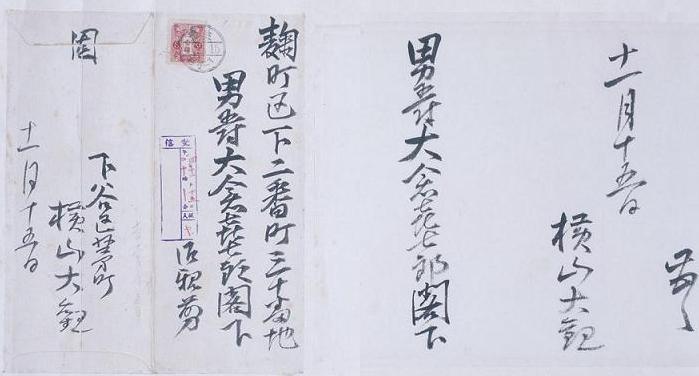 麹町区下二番町三十番地
男爵大倉喜七郎閣下
御親剪
固
下谷区茅町
横山大観
十一月十五日
受信
十一月十五日
横山大観
男爵大倉喜七郎閣下